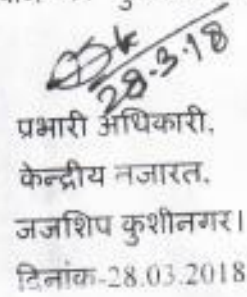 28.3.18
प्रभारी अधिकारी,
केन्द्रीय नजारत,
जजशिप कुशीनगर।
दिनांक-28.03.2018